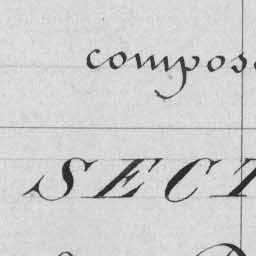 compos
SECT